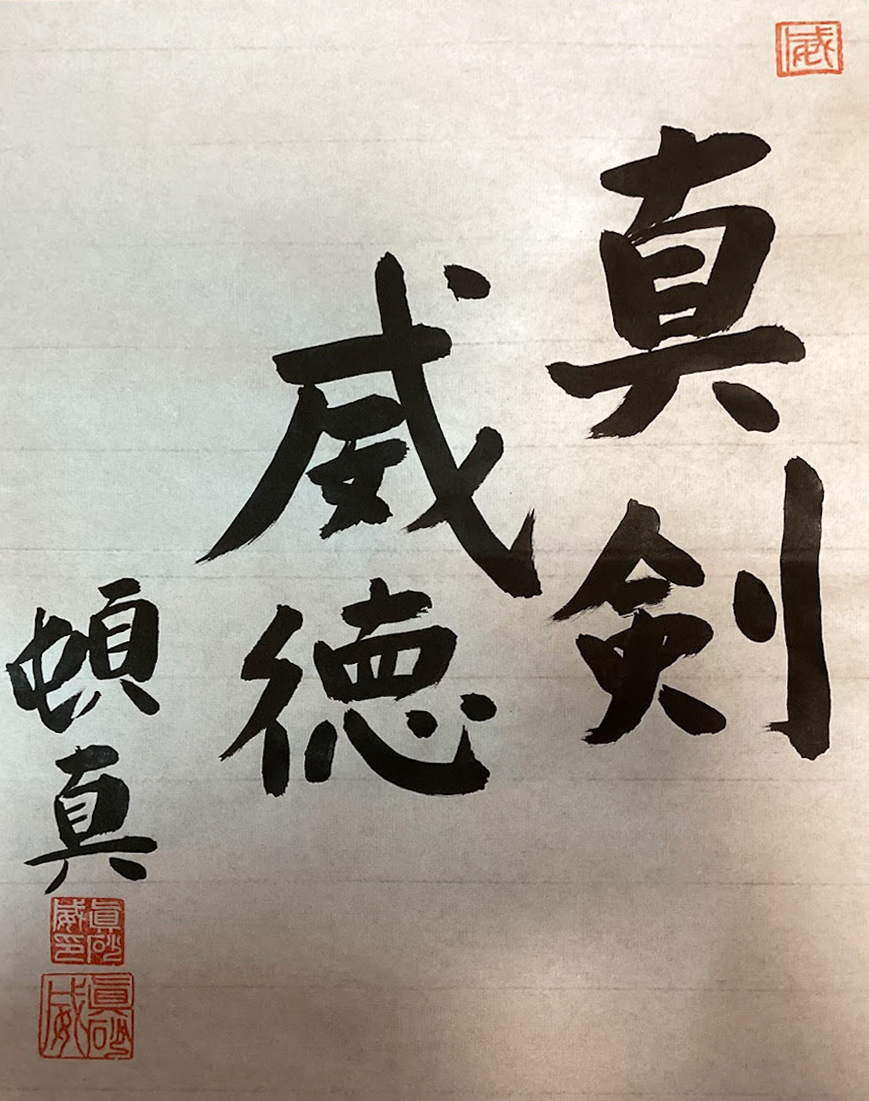 威
真剣
威徳
頓真
眞砂
威印
眞砂
威